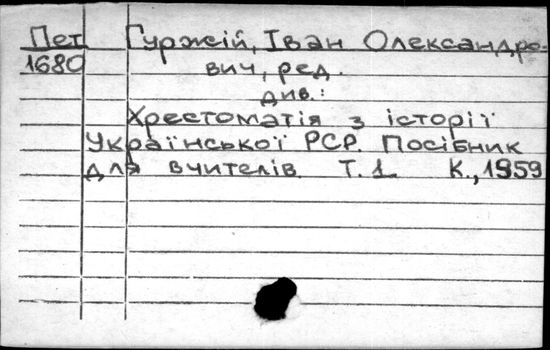 Пет Гуржій, Іван Олександро-
1680 вич, ред.
див.:
Хрестоматія з історії
Української РСР. Посібник
для вчителів. Т.1. К., 1959